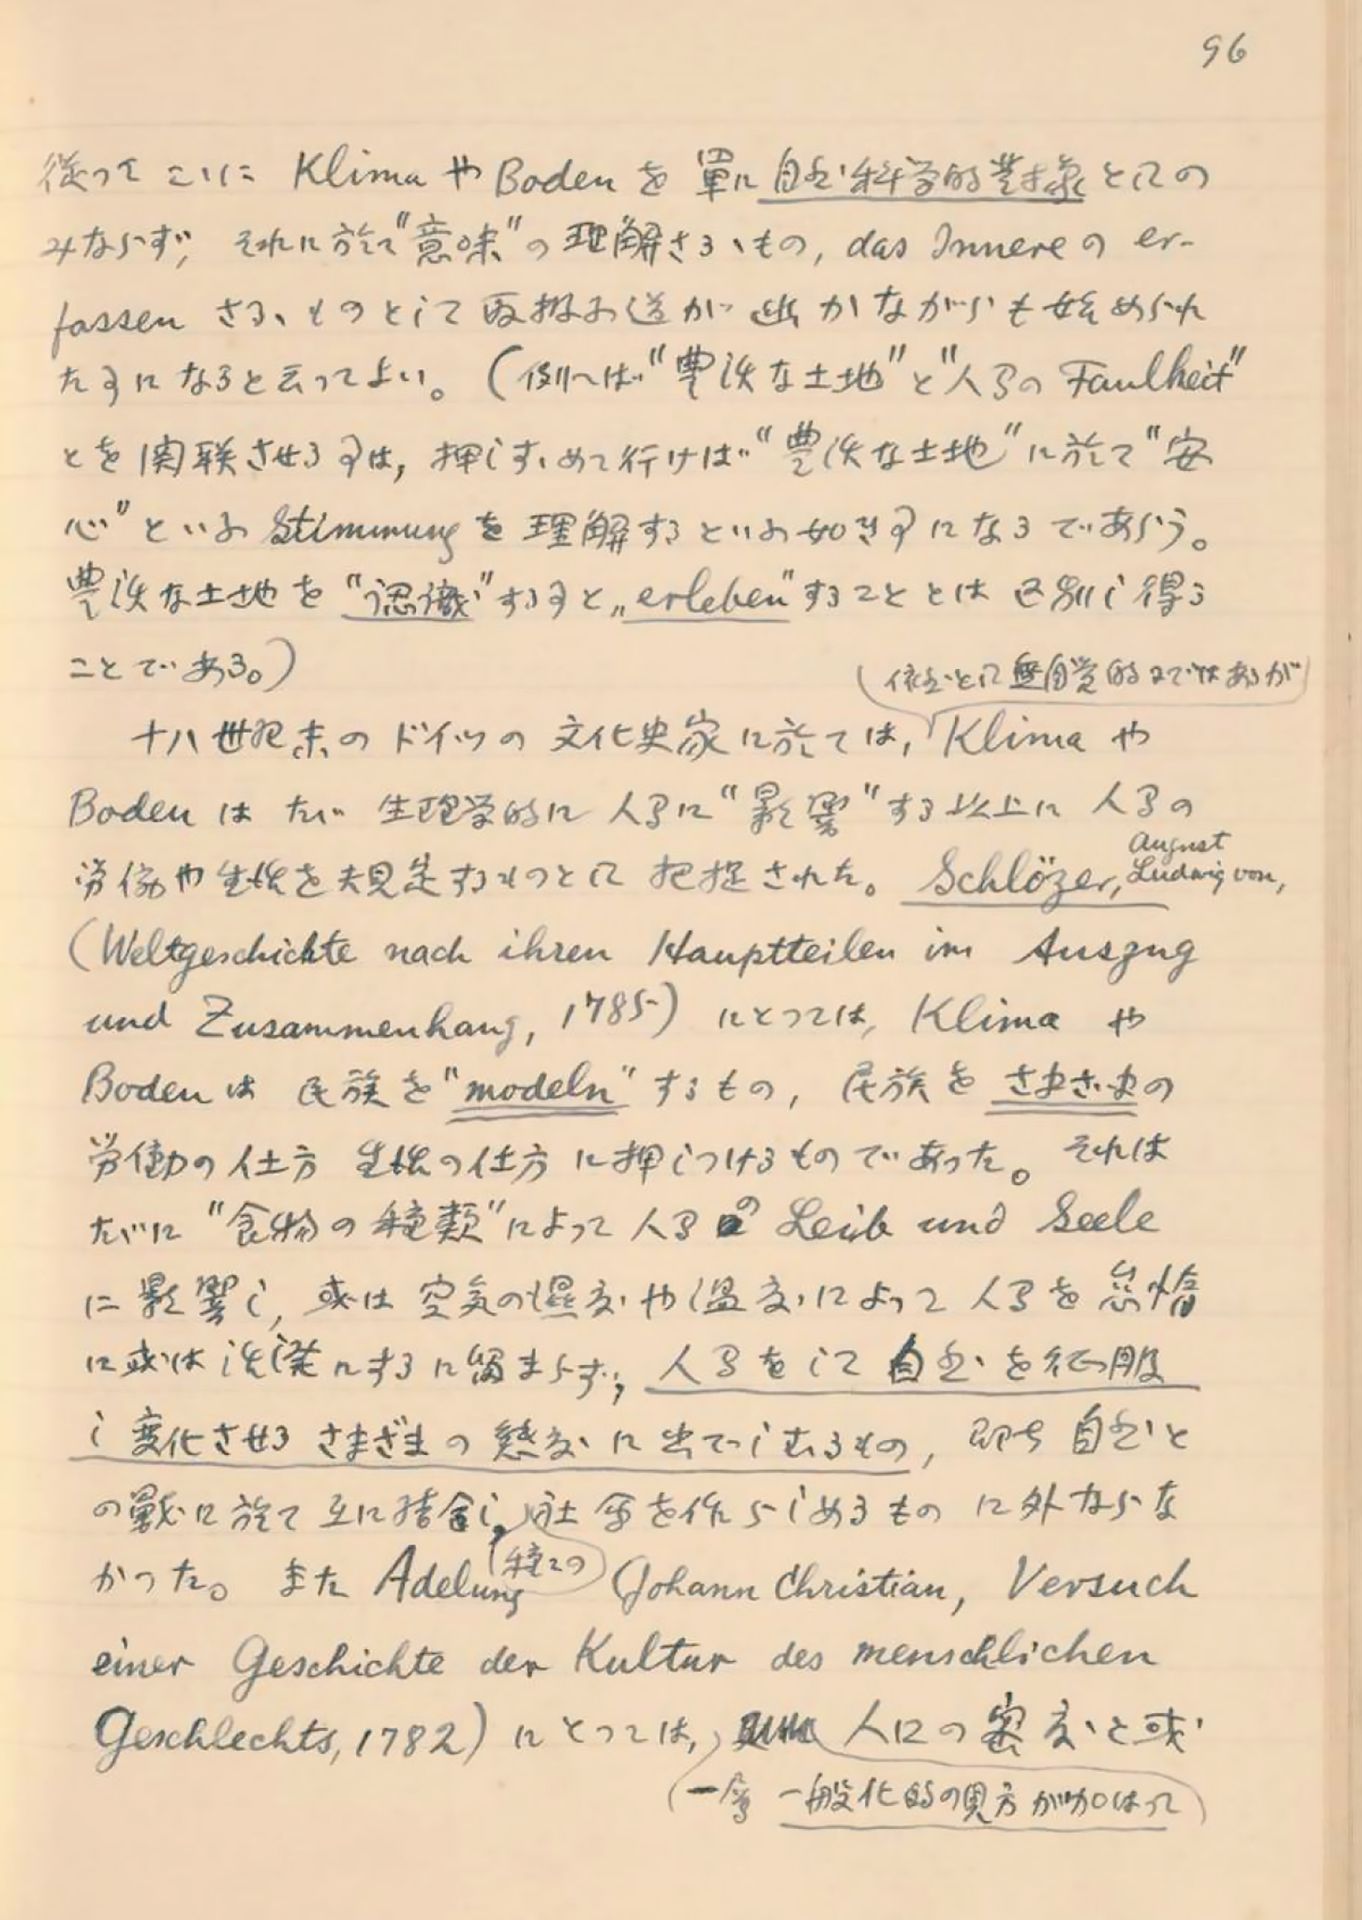 96
従ってこゝに Klima や Boden を単に自然科学的対象としての
みならず、それに於て"意味"の理解さるゝもの, das Innere の er-
fassen さるゝものとして取扱ふ道が幽かながらも始められ
た事になると云ってよい。(例へば"豊沃な土地"と"人間の Faulheit"
とを関联させる事は, 押しすゝめて行けば"豊沃な土地"に於て"安
心"といふ Stimmung を理解するといふ如き事になるであらう。
豊沃な土地を"認識"する事と„erleben"することとは区別し得る
ことである。)
(依然として無自覚的まではあるが
十八世紀末のドイツの文化史家に於ては, Klima や
Boden はたゞ生理学的に人間に"影響"する以上に人間の
労働や生活を規定するものとして把捉された。Schlözer, August Ludwig von,
(Weltgeschichte nach ihren Hauptteilen im Auszug
und Zusammenhang, 1785) にとつては, Klima や
Boden は民族を"modeln"するもの, 民族をさまざまの
労働の仕方 生活の仕方に押しつけるものであった。それは
たゞに"食物の種類"によって人間の Leib und Seele
に影響し, 或は空気の湿度や温度によって人間を怠惰
に或は活溌にするに留まらず, 人間をして自然を征服
し変化させるさまざまの態度に出でしむるもの, 即ち自然と
の戦に於て互に結合し, 社会を作らしめるものに外ならな
(種々の)
かった。また Adelung (Johann Christian, Versuch
einer Geschichte der Kultur des menschlichen
Geschlechts, 1782) にとつては, 人口の密度と或
(一層 一般化的の見方が加はって)